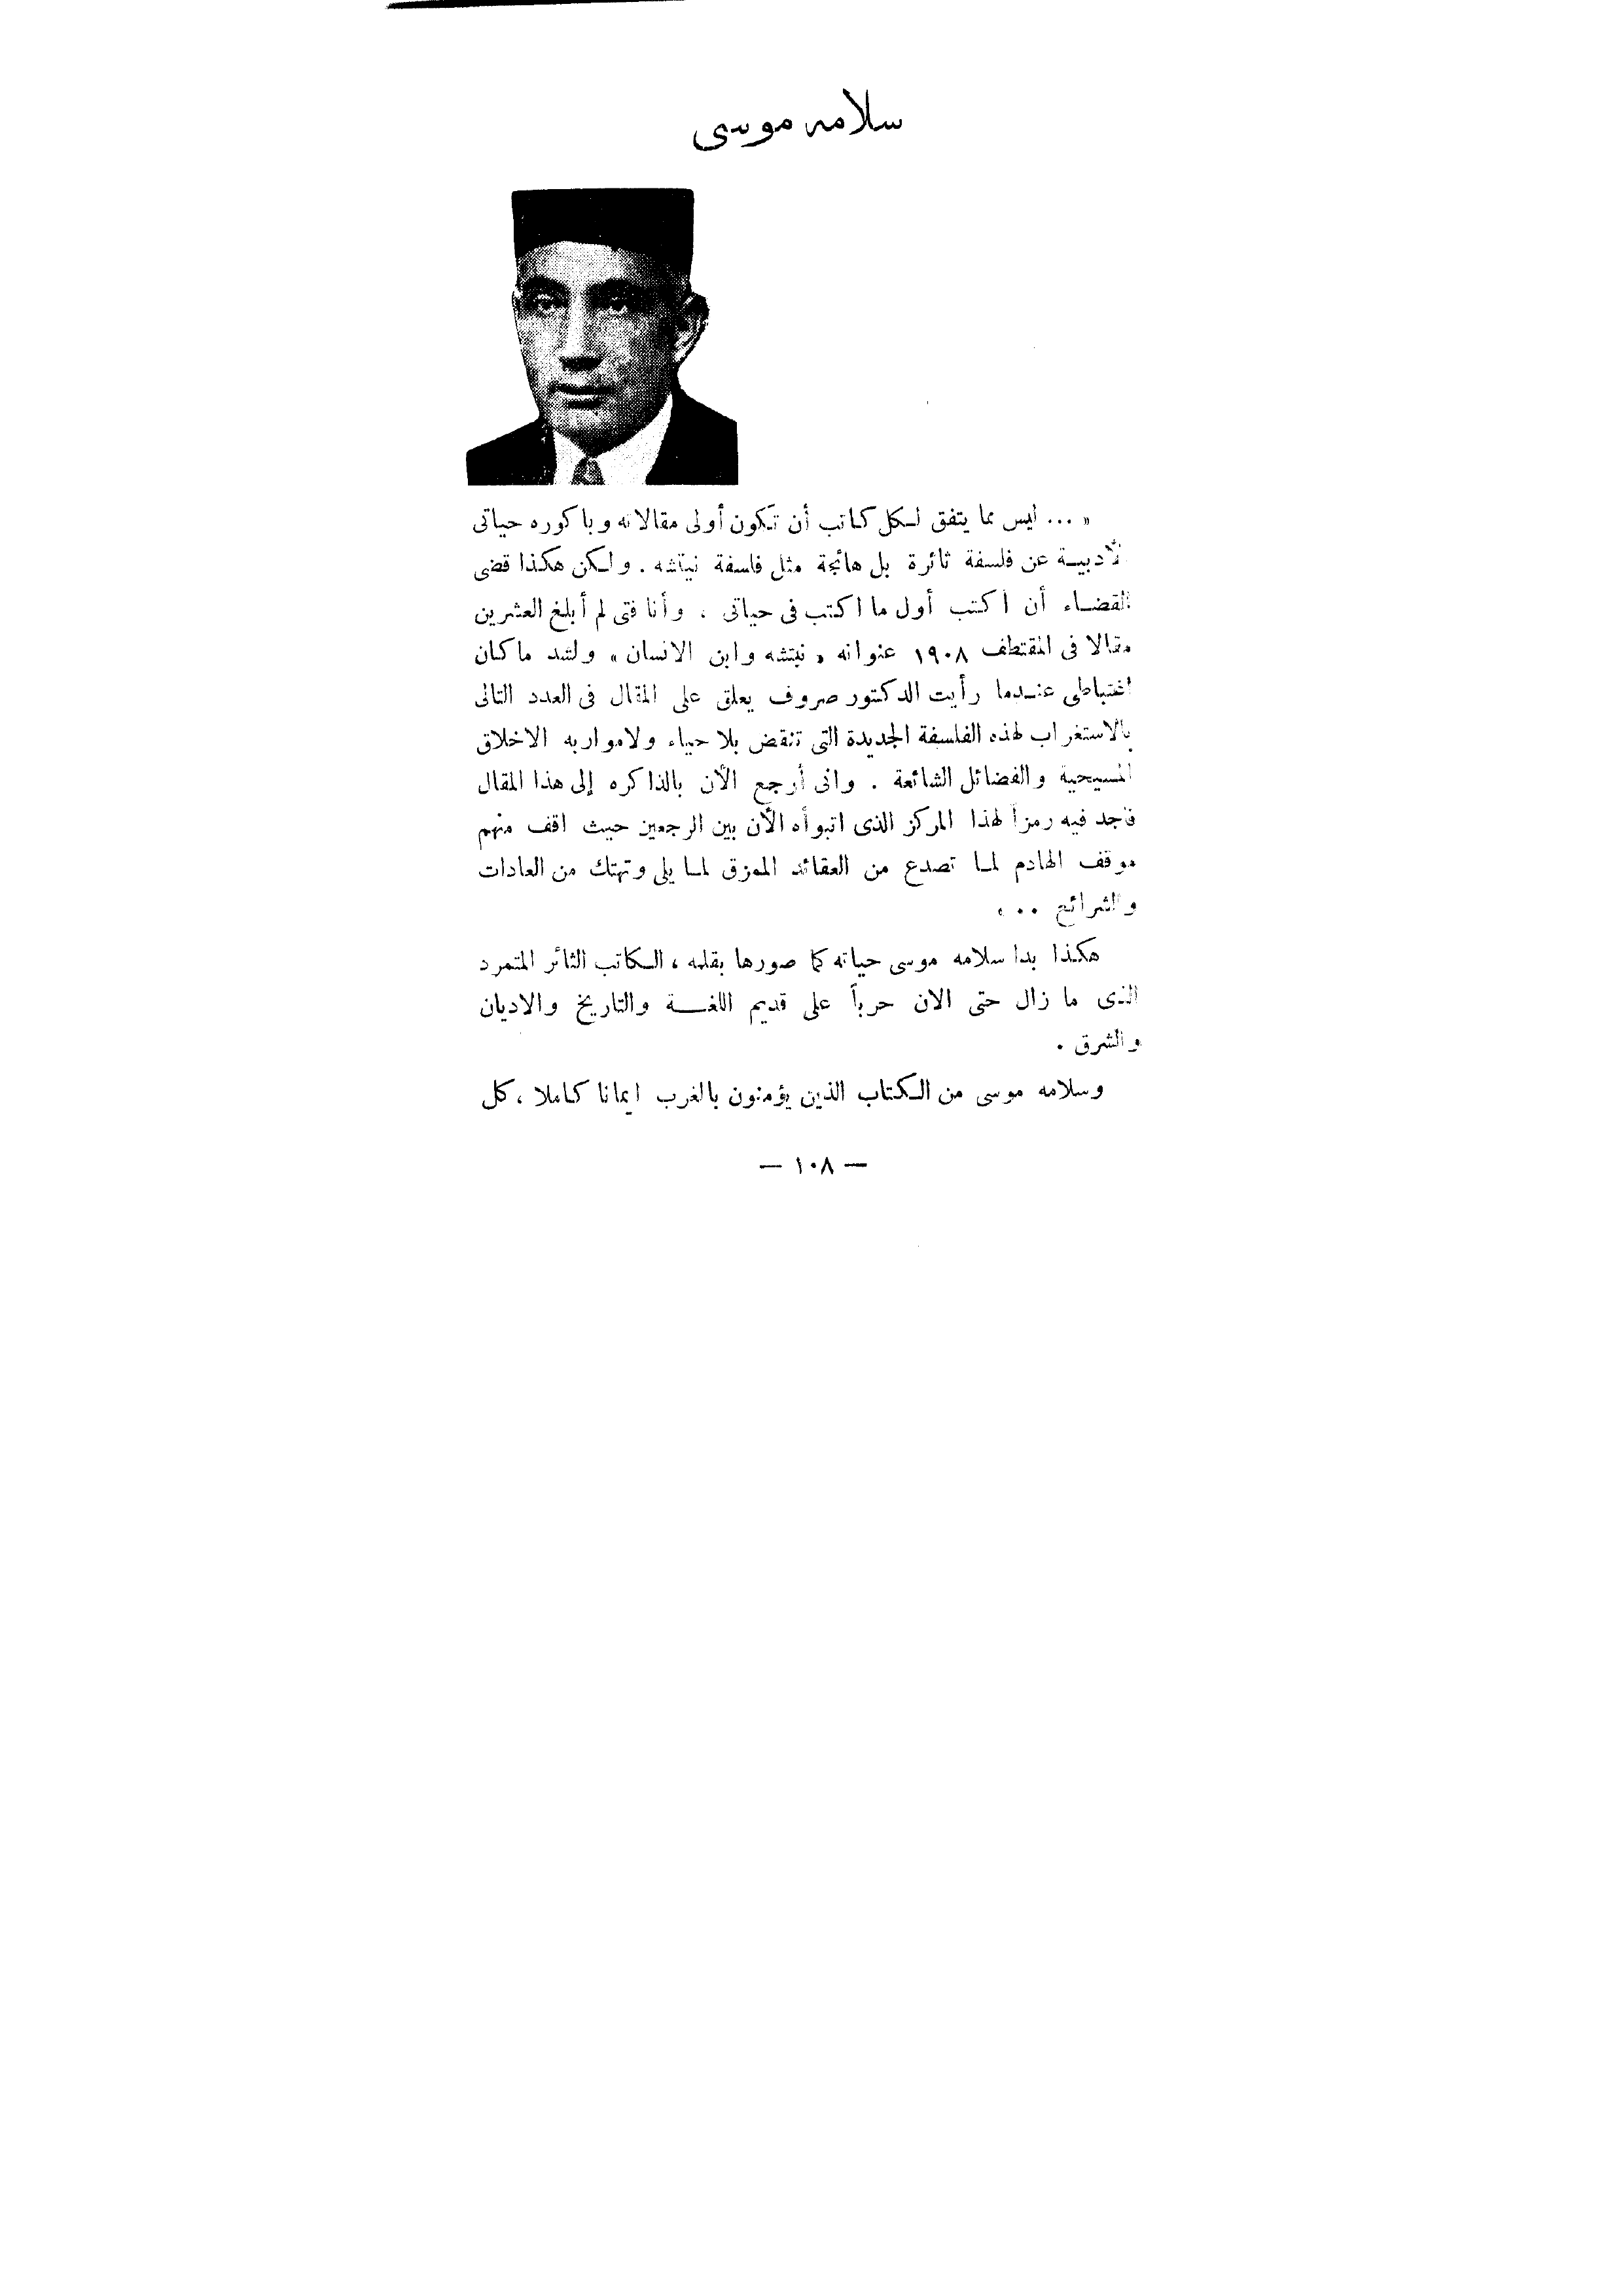 سلامه موسى
« ... ليس مما يتفق لكل كاتب أن تكون أولى مقالاته وباكوره حياتى
الأدبية عن فلسفة ثائرة بل هائجة مثل فلسفة نيتشه . ولكن هكذا قضى
القضاء أن اكتب أول ما اكتب فى حياتى ، وأنا فتى لم أبلغ العشرين
مقالا فى المقتطف ١٩٠٨ عنوانه « نيتشه وابن الانسان » ولشد ما كان
اغتباطى عندما رأيت الدكتور صروف يعلق على المقال فى العدد التالى
بالاستغراب لهذه الفلسفة الجديدة التى تنقض بلا حياء ولا مواربه الاخلاق
المسيحية والفضائل الشائعة . وانى أرجع الأن بالذاكره إلى هذا المقال
فاجد فيه رمزاً لهذا المركز الذى اتبوأه الأن بين الرجعين حيث اقف منهم
موقف الهادم لما تصدع من العقائد الممزق لما يلى وتهتك من العادات
والشرائع ... »
هكذا بدا سلامه موسى حياته كما صورها بقلمه ، الكاتب الثائر المتمرد
الذى ما زال حتى الان حرباً على قديم اللغة والتاريخ والاديان
والشرق .
وسلامه موسى من الكتاب الذين يؤمنون بالغرب ايمانا كاملا ، كل
— ١٠٨ —